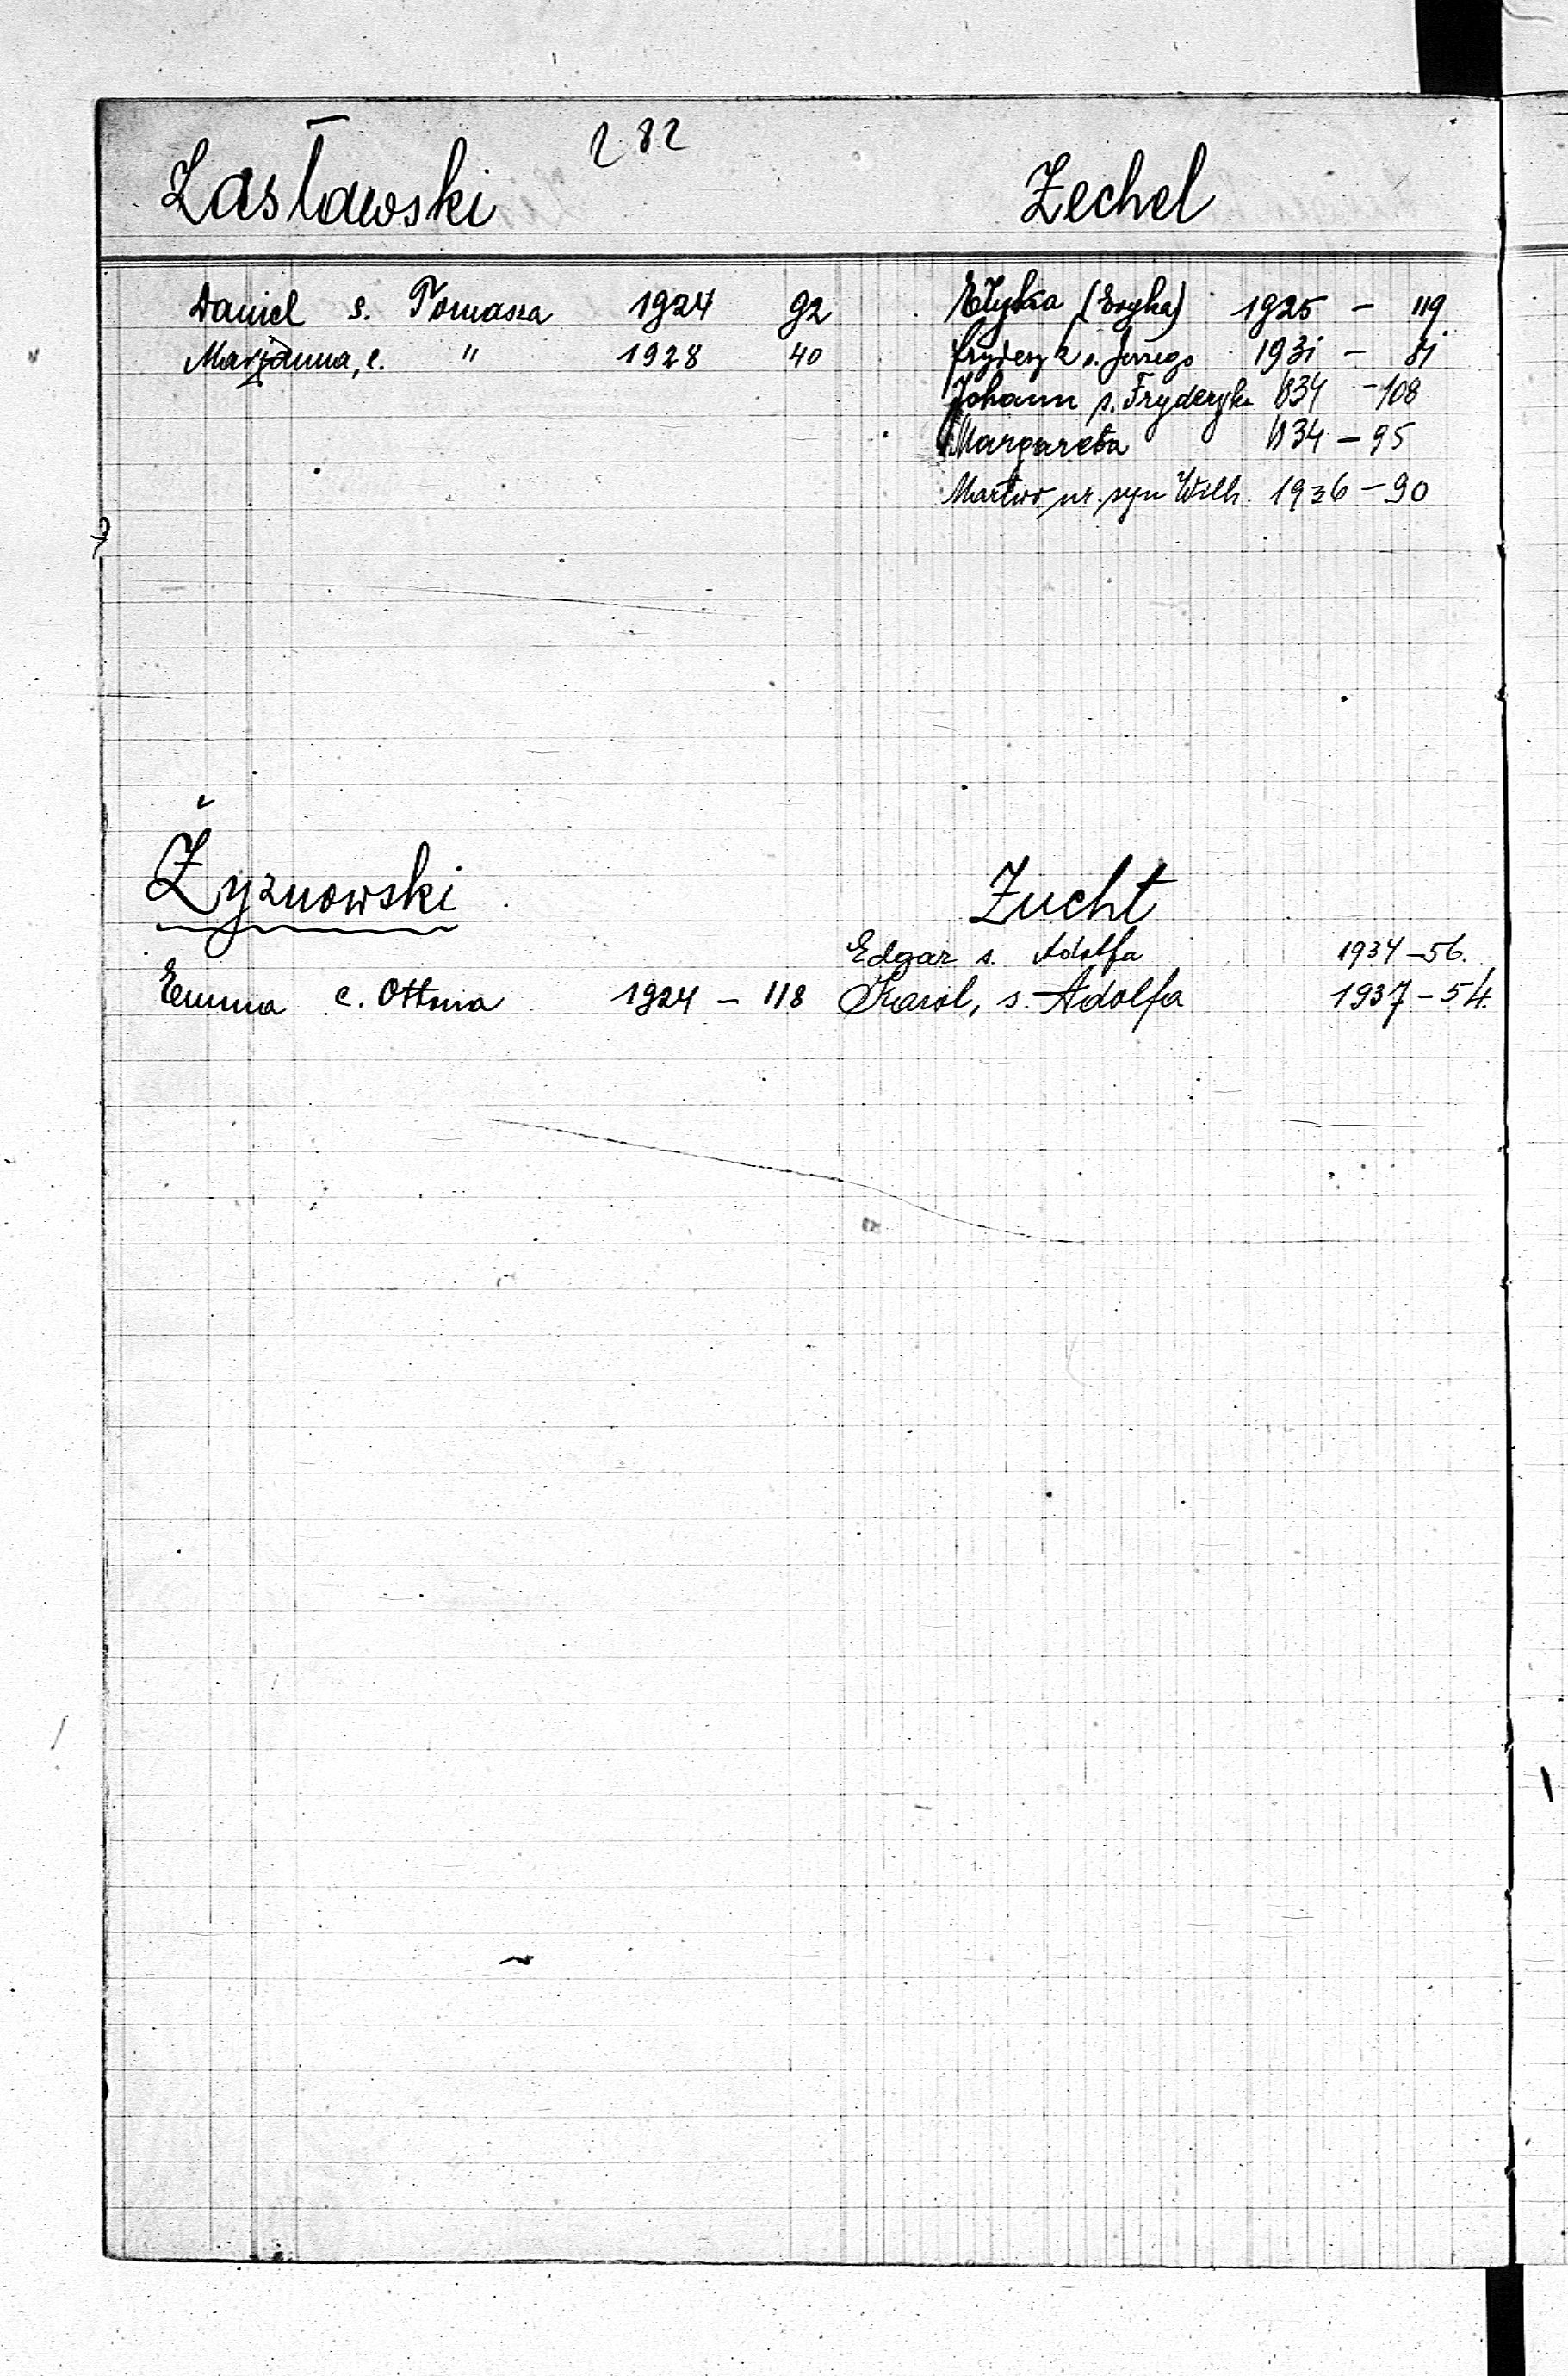 282
Zasławski
Daniel s. Tomasza 1924 92
Marjanna, c. " 1928 40
Zechel
Etyka (Eryka) 1925 - 119
Fryderyk s. Jerzego 1931 - 81
Johann s. Fryderyka 1934 - 108
Margareta 1934 - 95
Martwo ur. syn Wilh. 1936 - 90
Żyznowski
Emma c. Ottona 1924 - 118
Zucht
Edgar s. Adolfa 1934 - 56.
Karol, s. Adolfa 1937 - 54.